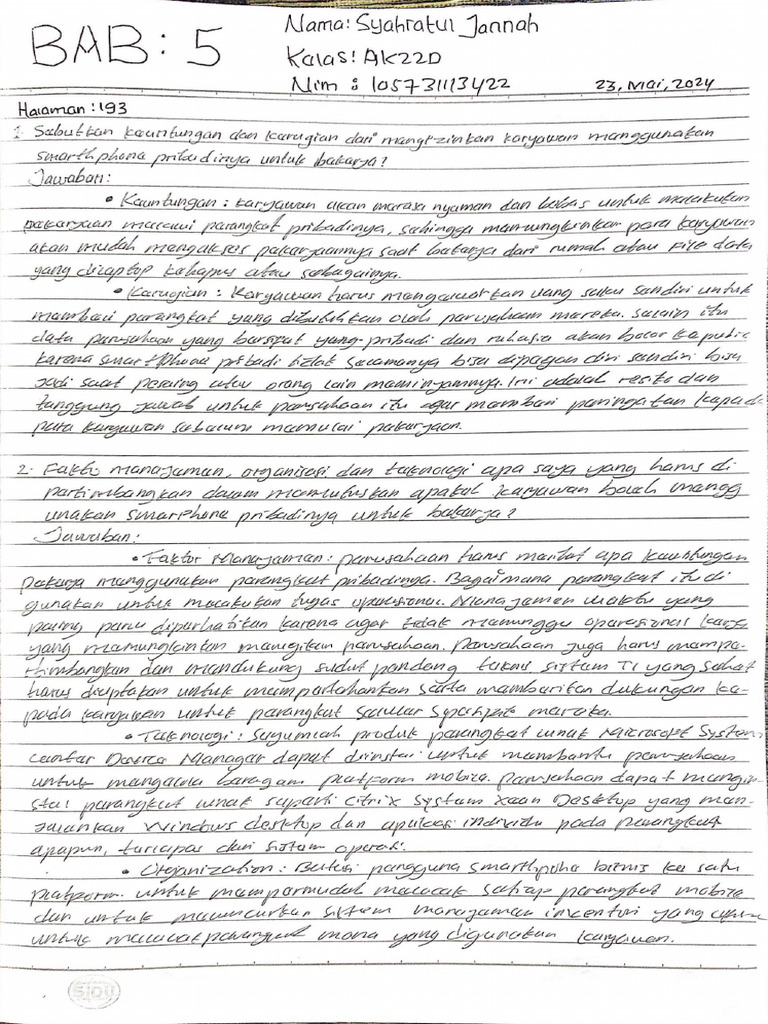 BAB : 5
Nama: Syahratul Jannah
Kelas: AK22D
Nim : 105731113422
23, Mei, 2024
Halaman : 193
1. Sebutkan keuntungan dan kerugian dari mengizinkan karyawan menggunakan
smarthphone pribadinya untuk bekerja?
Jawaban:
• Keuntungan : karyawan akan merasa nyaman dan bebas untuk melakukan
pekerjaan melalui perangkat pribadinya, sehingga memungkinkan para karyawan
akan mudah mengakses pekerjaannya saat bekerja dari rumah atau file data
yang dilaptop kehapus atau sebagainya.
• Kerugian : Karyawan harus mengeluarkan uang saku sendiri untuk
membeli perangkat yang dibutuhkan oleh perusahaan mereka. selain itu
data perusahaan yang bersifat yang pribadi dan rahasia akan bocor ke publik
karena smartphone pribadi tidak selamanya bisa dipegang diri sendiri bisa
jadi saat orang lain meminjamnya. Ini adalah resiko dan
tanggung jawab untuk perusahaan itu agar memberi peringatan kepada
para karyawan sebelum memulai pekerjaan.
2. Faktor manajemen, organisasi dan teknologi apa saja yang harus di
pertimbangkan dalam memutuskan apakah karyawan boleh mengg
unakan smarphone pribadinya untuk bekerja?
Jawaban:
• Faktor Manajemen : perusahaan harus melihat apa keuntungan
pekerja menggunakan perangkat pribadinya. Bagaimana perangkat itu di
gunakan untuk melakukan tugas operasional. Manajemen waktu yang
paling perlu diperhatikan karena agar tidak menunggu operasional kerja
yang memungkinkan merugikan perusahaan. Perusahaan juga harus mempe-
rtimbangkan dan mendukung sudut pandang teknis sistem TI yang sehat
harus diciptakan untuk mempertahankan serta memberikan dukungan ke-
pada karyawan untuk perangkat seluler mereka.
• Teknologi : Sejumlah produk perangkat lunak Microsoft System
Center Device Manager dapat diinstal untuk membantu perusahaan
untuk mengelola beragam platform mobile. Perusahaan dapat mengin-
stal perangkat lunak seperti Citrix System Xaan Desktop yang men-
jalankan Windows desktop dan aplikasi individu pada perangkat
apapun, terlepas dari sistem operasi.
• Organization : Batasi pengguna bisnis ke satu
platform. untuk mempermudah melacak setiap perangkat mobile
dan untuk meluncurkan sistem manajemen inventori yang
untuk melacak perangkat mana yang digunakan karyawan.
SIDU